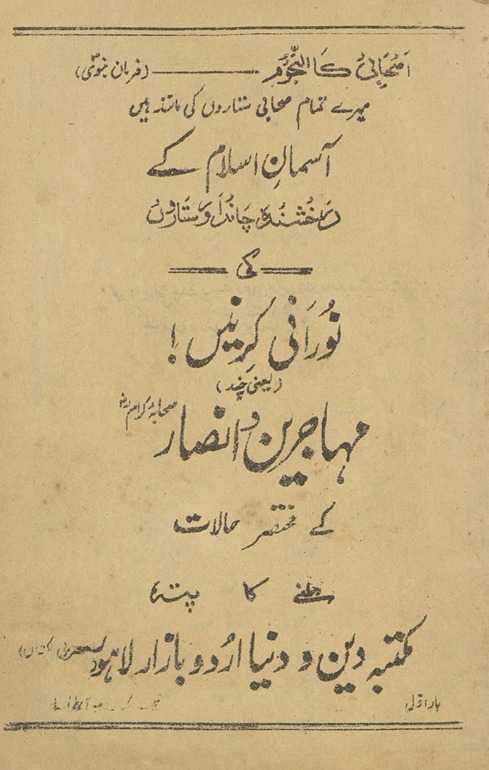 اَصْحَابِیْ کَالنُّجُوْم ——— (فرمانِ نبویؐ)
میرے تمام صحابی ستاروں کی مانند ہیں
آسمانِ اسلام کے
درخشندہ چاند اور ستاروں
کی
نُورانی کرنیں!
(یعنی چند)
مہاجرین و انصار صحابہ کرامؓ
کے مختصر حالات
ملنے کا پتہ
مکتبہ دین و دنیا اردو بازار لاہور (مغربی پاکستان)
بار اوّل